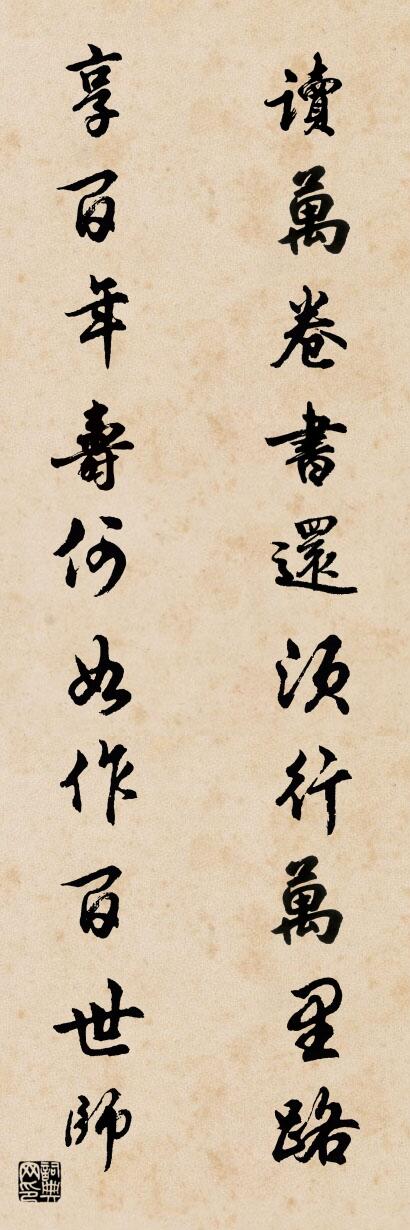 讀萬卷書還須行萬里路
享百年壽何如作百世師
詞典網印